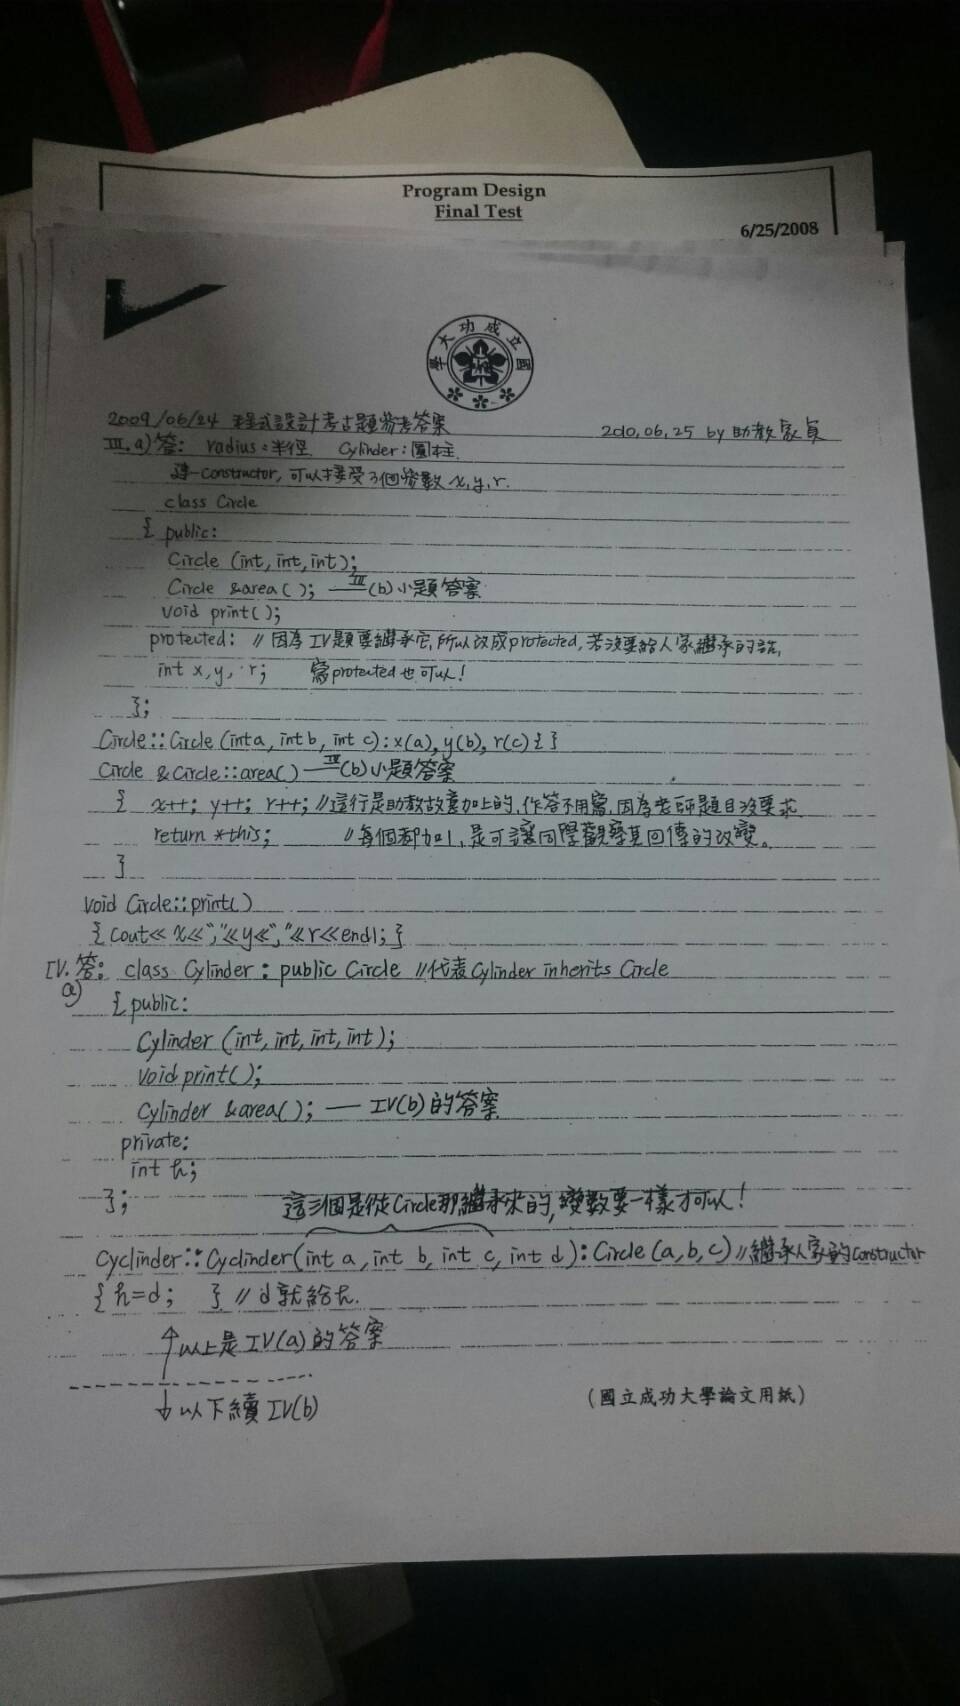 Program Design
Final Test
6/25/2008
國立成功大學
2009/06/24 程式設計考古題參考答案
2010.06.25 by 助教家貞
III.a)答: radius:半徑 Cylinder:圓柱.
建一constructor, 可以接受3個參數 x,y,r.
class Circle
{ public:
Circle (int, int, int);
Circle &area(); —— III(b)小題答案
void print();
protected: // 因為IV題要繼承它,所以改成protected,若沒要給人家繼承的話,
int x,y, r; 寫protected也可以!
};
Circle::Circle (int a, int b, int c): x(a), y(b), r(c) { }
Circle &Circle::area() —— III(b)小題答案
{ x++; y++; r++; //這行是助教故意加上的,作答不用寫,因為老師題目沒要求.
return *this; //每個都加1,是可讓同學觀察其回傳的改變。
}
void Circle::print()
{ cout<< x<<","<<y<<","<<r<<endl; }
IV.答: class Cylinder : public Circle //代表Cylinder inherits Circle
a)
{ public:
Cylinder (int, int, int, int);
void print();
Cylinder &area(); —— IV(b)的答案
private:
int h;
};
這三個是從Circle那繼承來的,變數要一樣才可以!
Cyclinder::Cyclinder(int a, int b, int c, int d): Circle (a,b,c) //繼承人家的constructor
{ h=d; } // d 就給h.
↑以上是IV(a)的答案
↓以下續IV(b)
(國立成功大學論文用紙)